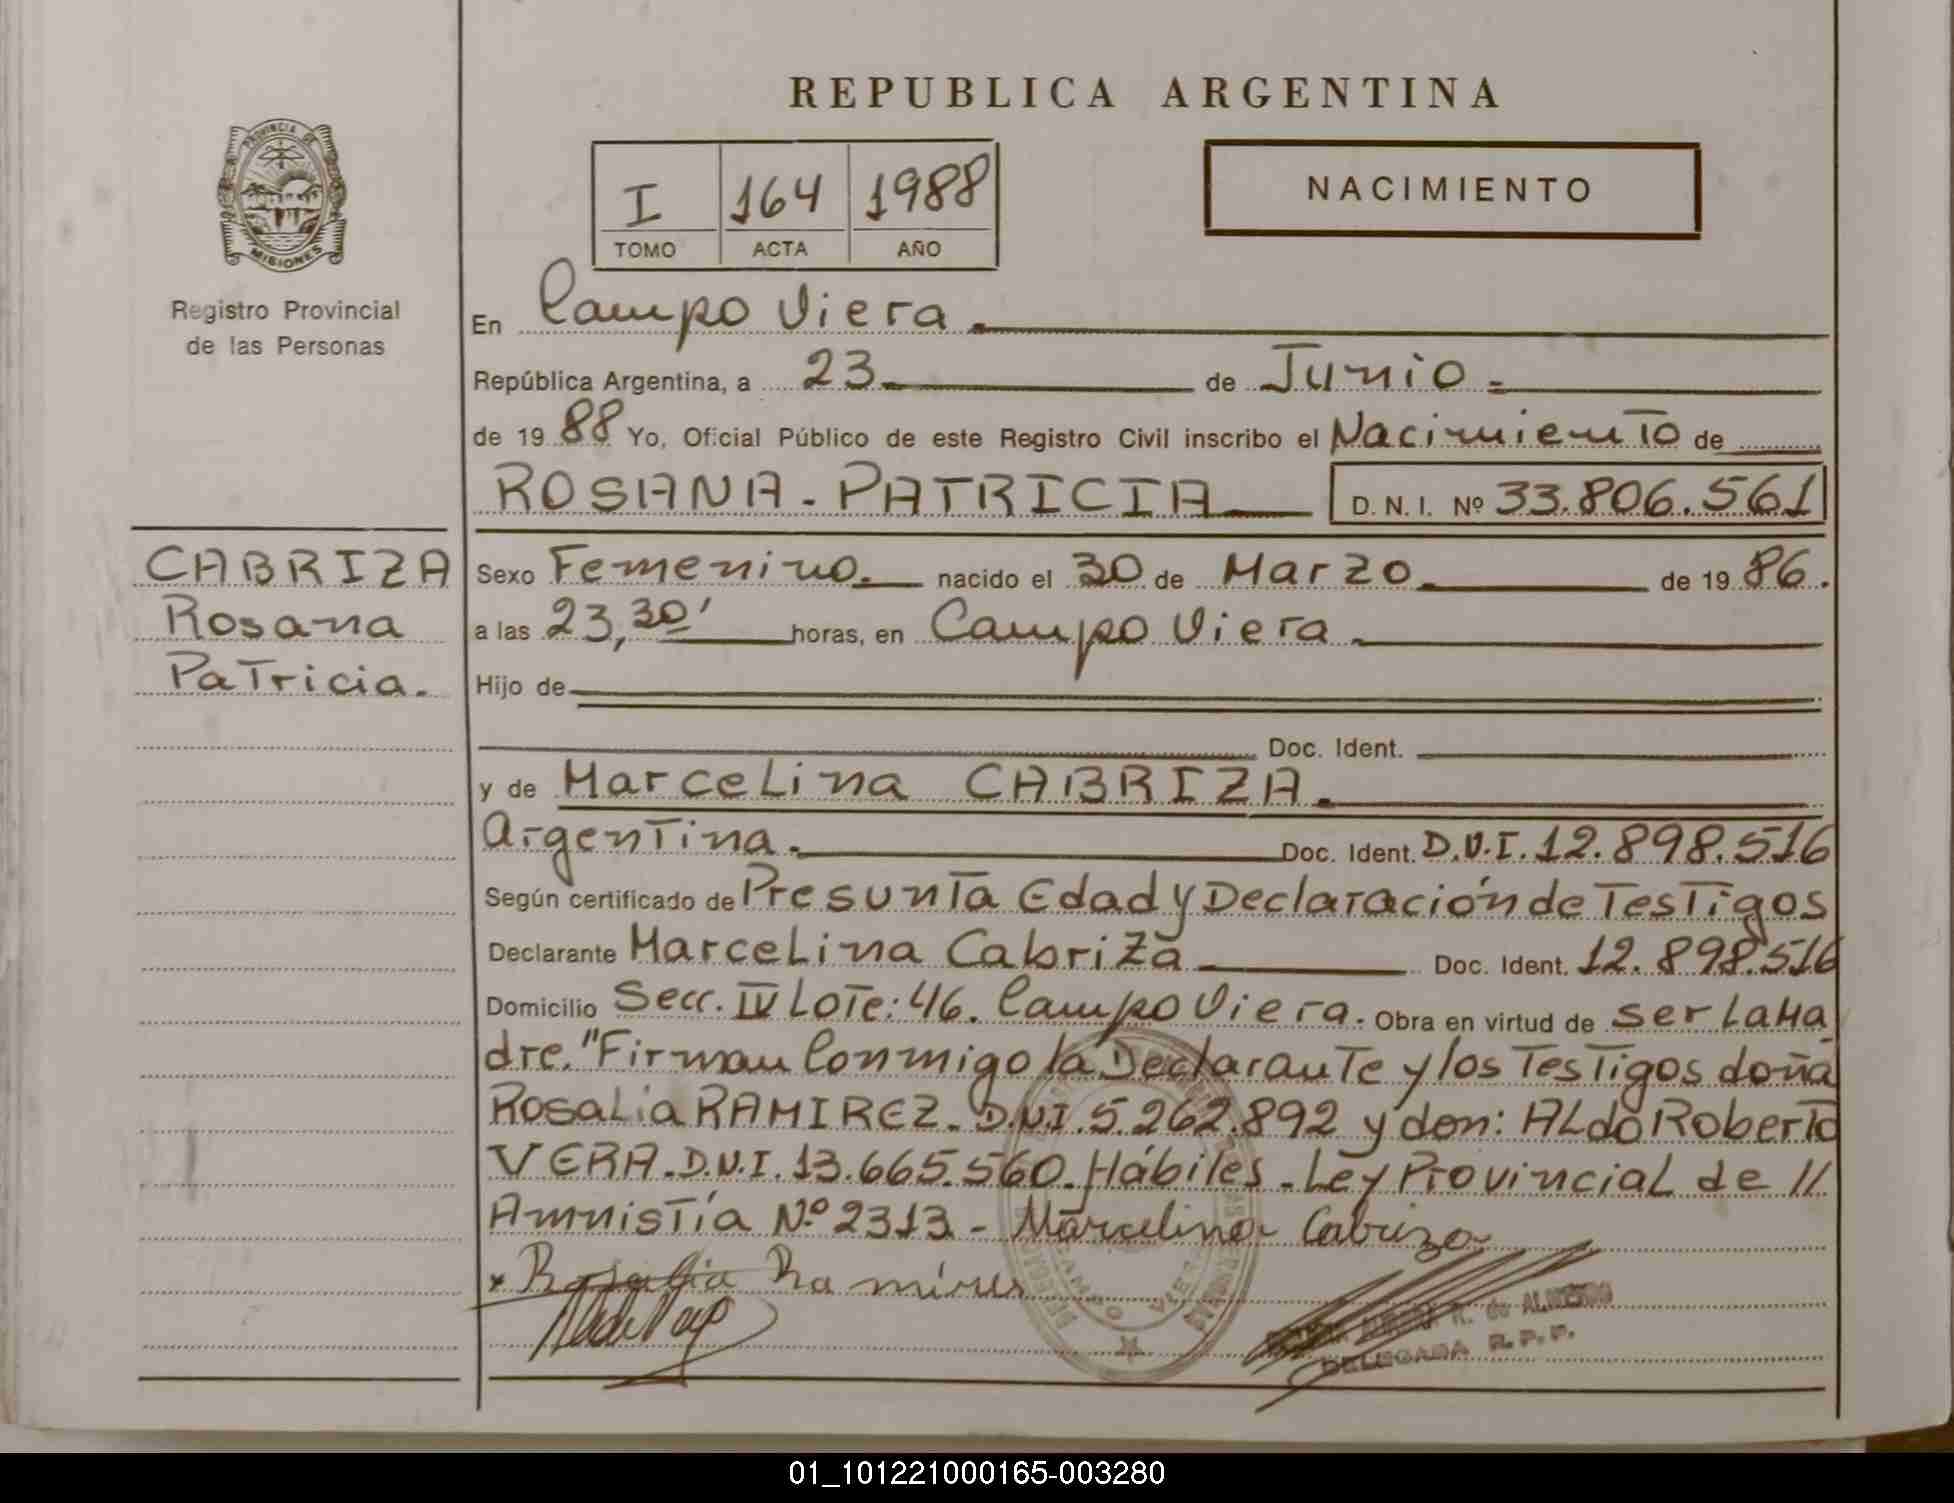 REPUBLICA ARGENTINA
PROVINCIA DE
MISIONES
I 164 1988
TOMO ACTA AÑO
NACIMIENTO
Registro Provincial
de las Personas
En Campo Viera
República Argentina, a 23 de Junio
de 19 88 Yo, Oficial Público de este Registro Civil inscribo el Nacimiento de
ROSANA - PATRICIA D. N. I. Nº 33.806.561
CABRIZA
Rosana
Patricia.
Sexo Femenino. nacido el 30 de Marzo de 19 86.
a las 23,30' horas, en Campo Viera
Hijo de
Doc. Ident.
y de Marcelina CABRIZA.
Argentina. Doc. Ident. D.N.I. 12.898.516
Según certificado de Presunta Edad y Declaración de Testigos
Declarante Marcelina Cabriza Doc. Ident. 12.898.516
Domicilio Secc. IV Lote: 46. Campo Viera. Obra en virtud de ser la Ma
dre. "Firman Conmigo la Declarante y los Testigos doña
Rosalia RAMIREZ. D.N.I. 5.262.892 y don: Aldo Roberto
VERA. D.N.I. 13.665.560. Hábiles. Ley Provincial de //
Amnistía Nº 2313 - Marcelina Cabriza
x Rosalia Ramires
R. de ALMEIDO
DELEGADA R.P.P.
01_101221000165-003280